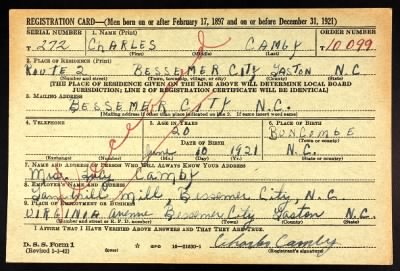 REGISTRATION CARD—(Men born on or after February 17, 1897 and on or before December 31, 1921)
SERIAL NUMBER 1. NAME (Print) ORDER NUMBER
T 272 CHARLES CAMBY T 10,099
(First) (Middle) (Last)
2. PLACE OF RESIDENCE (Print)
ROUTE 2 BESSEMER CITY GASTON N.C.
(Number and street) (Town, township, village, or city) (County) (State)
[THE PLACE OF RESIDENCE GIVEN ON THE LINE ABOVE WILL DETERMINE LOCAL BOARD
JURISDICTION; LINE 2 OF REGISTRATION CERTIFICATE WILL BE IDENTICAL]
3. MAILING ADDRESS
BESSEMER CITY N.C.
[Mailing address if other than place indicated on line 2. If same insert word same]
4. TELEPHONE 5. AGE IN YEARS 6. PLACE OF BIRTH
20 BUNCOMBE
DATE OF BIRTH (Town or county)
June 10 1921 N.C.
(Exchange) (Number) (Mo.) (Day) (Yr.) (State or country)
7. NAME AND ADDRESS OF PERSON WHO WILL ALWAYS KNOW YOUR ADDRESS
Mrs. Camby
8. EMPLOYER'S NAME AND ADDRESS
Mill, Bessemer City, N.C.
9. PLACE OF EMPLOYMENT OR BUSINESS
VIRGINIA avenue Bessemer City Gaston N.C.
(Number and street or R. F. D. number) (Town) (County) (State)
I AFFIRM THAT I HAVE VERIFIED ABOVE ANSWERS AND THAT THEY ARE TRUE.
D. S. S. Form 1
(Revised 1-1-42) GPO 16—21630-1 Charles Camby
(Registrant's signature)